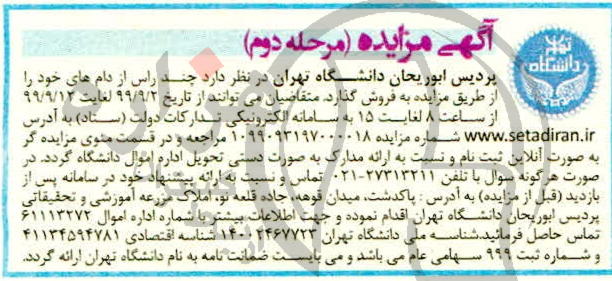 آگهی مزایده (مرحله دوم)
پردیس ابوریحان دانشگاه تهران در نظر دارد چند راس از دام های خود را
از طریق مزایده به فروش گذارد. متقاضیان می توانند از تاریخ ۹۹/۹/۲ لغایت ۹۹/۹/۱۲
از ساعت ۸ لغایت ۱۵ به سامانه الکترونیکی تدارکات دولت (ستاد) به آدرس
www.setadiran.ir شماره مزایده ۱۰۹۹۰۹۳۱۹۷۰۰۰۰۱۸ مراجعه و در قسمت منوی مزایده گر
به صورت آنلاین ثبت نام و نسبت به ارائه مدارک به صورت دستی تحویل اداره اموال دانشگاه گردد. در
صورت هرگونه سوال با تلفن ۲۷۳۱۳۲۱۱-۰۲۱ تماس و نسبت به ارائه پیشنهاد خود در سامانه پس از
بازدید (قبل از مزایده) به آدرس : پاکدشت، میدان قوهه، جاده قلعه نو، املاک مزرعه آموزشی و تحقیقاتی
پردیس ابوریحان دانشگاه تهران اقدام نموده و جهت اطلاعات بیشتر با شماره اداره اموال ۶۱۱۱۳۲۷۲
تماس حاصل فرمائید.شناسه ملی دانشگاه تهران ۱۴۰۰۲۴۶۷۷۲۳ شناسه اقتصادی ۴۱۱۳۴۵۹۴۷۸۱
و شماره ثبت ۹۹۹ سهامی عام می باشد و می بایست ضمانت نامه به نام دانشگاه تهران ارائه گردد.
دانشگاه تهران